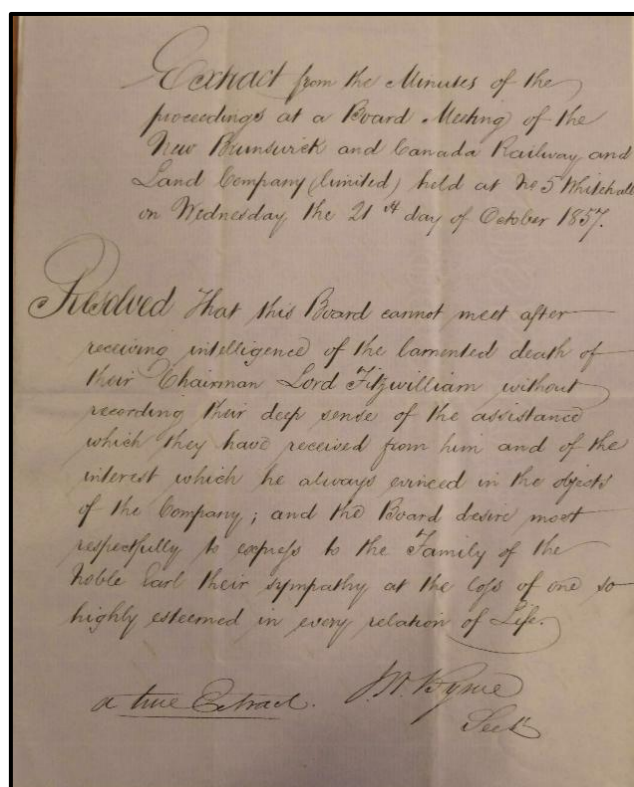 Extract from the Minutes of the
proceedings at a Board Meeting of the
New Brunswick and Canada Railway and
Land Company (limited) held at No 5 Whitehall
on Wednesday the 21st day of October 1857.
Resolved That this Board cannot meet after
receiving intelligence of the lamented death of
their Chairman Lord Fitzwilliam without
recording their deep sense of the assistance
which they have received from him and of the
interest which he always evinced in the objects
of the Company; and the Board desire most
respectfully to express to the Family of the
Noble Earl their sympathy at the loss of one so
highly esteemed in every relation of Life.
a true Extract.
Secy